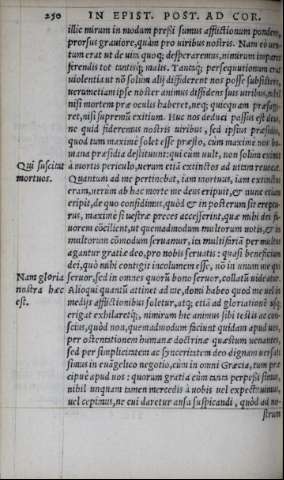 250 IN EPIST. POST. AD COR.
illic mirum in modum pressi sumus afflictionum pondere,
prorsus grauiore, quàm pro uiribus nostris. Nam eò uen-
tum erat ut de uita quoq; desperaremus, nimirum impares
ferendis tot tantisq; malis. Tantaq; persequutionum erat
uiolentia ut nõ solum alij diffiderent nos posse subsistere,
uerumetiam ipse noster animus diffidens suis uiribus, nihil
nisi mortem præ oculis haberet, neq; quicquam præsagi-
ret, nisi supremũ exitium. Huc nos deduci passus est deus,
ne quid fideremus nostris uiribus, sed ipsius præsidio,
quod tum maximè solet esse præsto, cum maximè nos hu-
mana præsidia destituunt: qui cùm uult, non solùm eximit
Qui suscitat à mortis periculo, uerum etiã extinctos ad uitam reuocat.
mortuos. Quantum ad me pertinebat, iam mortuus, iam extinctus
eram, uerùm ab hac morte me deus eripuit, & nunc etiam
eripit, de quo confidimus, quòd & in posterum sit erepturus,
rus, maximè si uestræ preces accesserint, quæ mihi dei fa-
uorem cõcilient, ut quemadmodum multorum uotis, & in
multorum cõmodum seruamur, ita multifariã per multos
agantur gratiæ deo, pro nobis seruatis: quasi beneficium
dei, quò nobis contigit incolumem esse, nõ in unum me qui
Nam gloria seruor, sed in omnes quorũ bono seruor, collatũ uideatur.
nostra hæc Alioqui quantũ attinet ad me, domi habeo quod me uel in
est. medijs afflictionibus soletur, atq; etiã ad gloriationẽ usq;
erigat exhilaretq;, nimirum hic animus sibi testis ac con-
scius, quòd non, quemadmodum faciunt quidam apud uos,
per ostentationem humanæ doctrinæ quæstum uenantes,
sed per simplicitatem ac synceritatem deo dignam uersati
simus in euãgelico negotio, cùm in omni Græcia, tum præ
cipuè apud uos: quorum gratia cùm tanta perpessi simus,
nihil unquam tamen mercedis à uobis uel expectauimus,
uel cepimus, ne cui daretur ansa suspicandi, quòd ad no-
strum